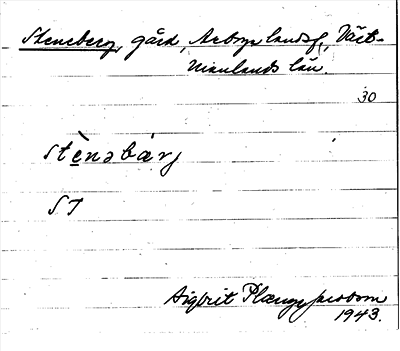 Steneberg, gård, Arboga landsf., Väst-
manlands län.
30
stènəbàrj
ST
Sigbrit Plænge Jacobson
1943.